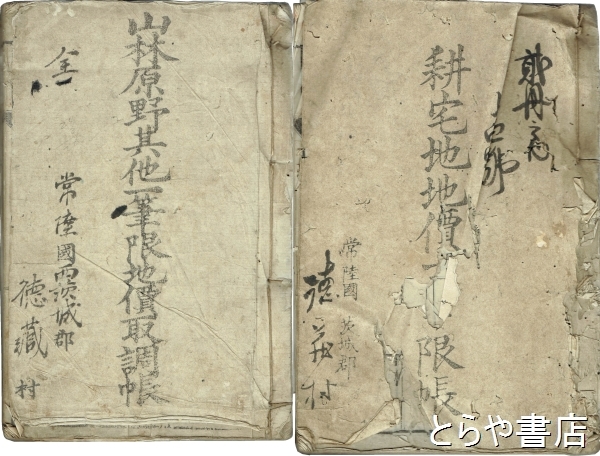 山林原野其他一筆限地價取調帳
全
常陸國西茨城郡
德藏村
耕宅地地價
限帳
常陸國
茨城郡
村
とらや書店